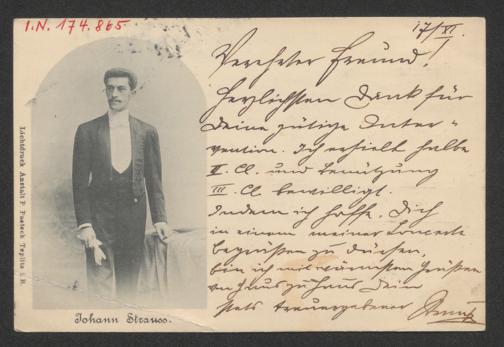 I.N. 174.865
17/XI.
Verehrter Freund!
Herzlichsten Dank für
Deine gütige Inter-
vention. Ich erhielt halbe
II. Cl. und Benützung
III. Cl. bewilligt.
Indem ich hoffe, Dich
in einem meiner Concerte
begrüssen zu dürfen,
bin ich mit wärmsten Grüssen
von Haus zu Haus Dein
stets treuergebener Strauss
Lichtdruck Anstalt P. Pasteck Teplitz i. B.
Johann Strauss.